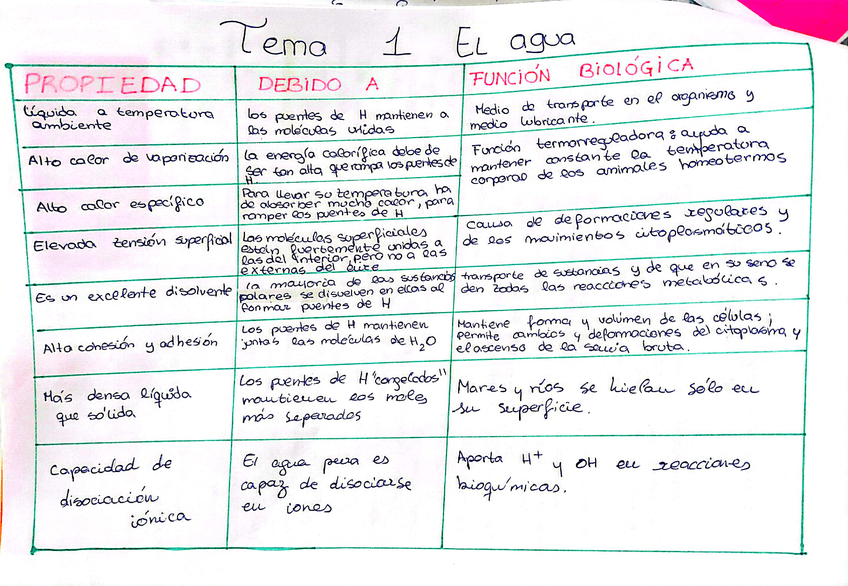 Tema 1 El agua
PROPIEDAD
DEBIDO A
FUNCIÓN BIOLÓGICA
Líquida a temperatura
ambiente
Los puentes de H mantienen a
las moléculas unidas
Medio de transporte en el organismo y
medio lubricante.
Alto calor de vaporización
La energía calorífica debe de
ser tan alta que rompa los puentes de
H.
Función termorreguladora: ayuda a
mantener constante la temperatura
corporal de los animales homeotermos
Alto calor específico
Para llevar su temperatura ha
de absorber mucho calor, para
romper los puentes de H
Elevada tensión superficial
Las moléculas superficiales
están fuertemente unidas a
las del interior, pero no a las
externas del aire
causa de deformaciones regulares y
de los movimientos citoplasmáticos.
Es un excelente disolvente
La mayoría de las sustancias
polares se disuelven en ellas al
formar puentes de H
transporte de sustancias y de que en su seno se
den todas las reacciones metabólicas.
Alta cohesión y adhesión
Los puentes de H mantienen
juntas las moléculas de H2O
Mantiene forma y volumen de las células;
permite cambios y deformaciones del citoplasma y
el ascenso de la savia bruta.
Más densa líquida
que sólida
Los puentes de H "congelados"
mantienen las moles
más separados
Mares y ríos se hielan sólo en
su superficie.
Capacidad de
disociación
iónica
El agua pura es
capaz de disociarse
en iones
Aporta H+ y OH en reacciones
bioquímicas.